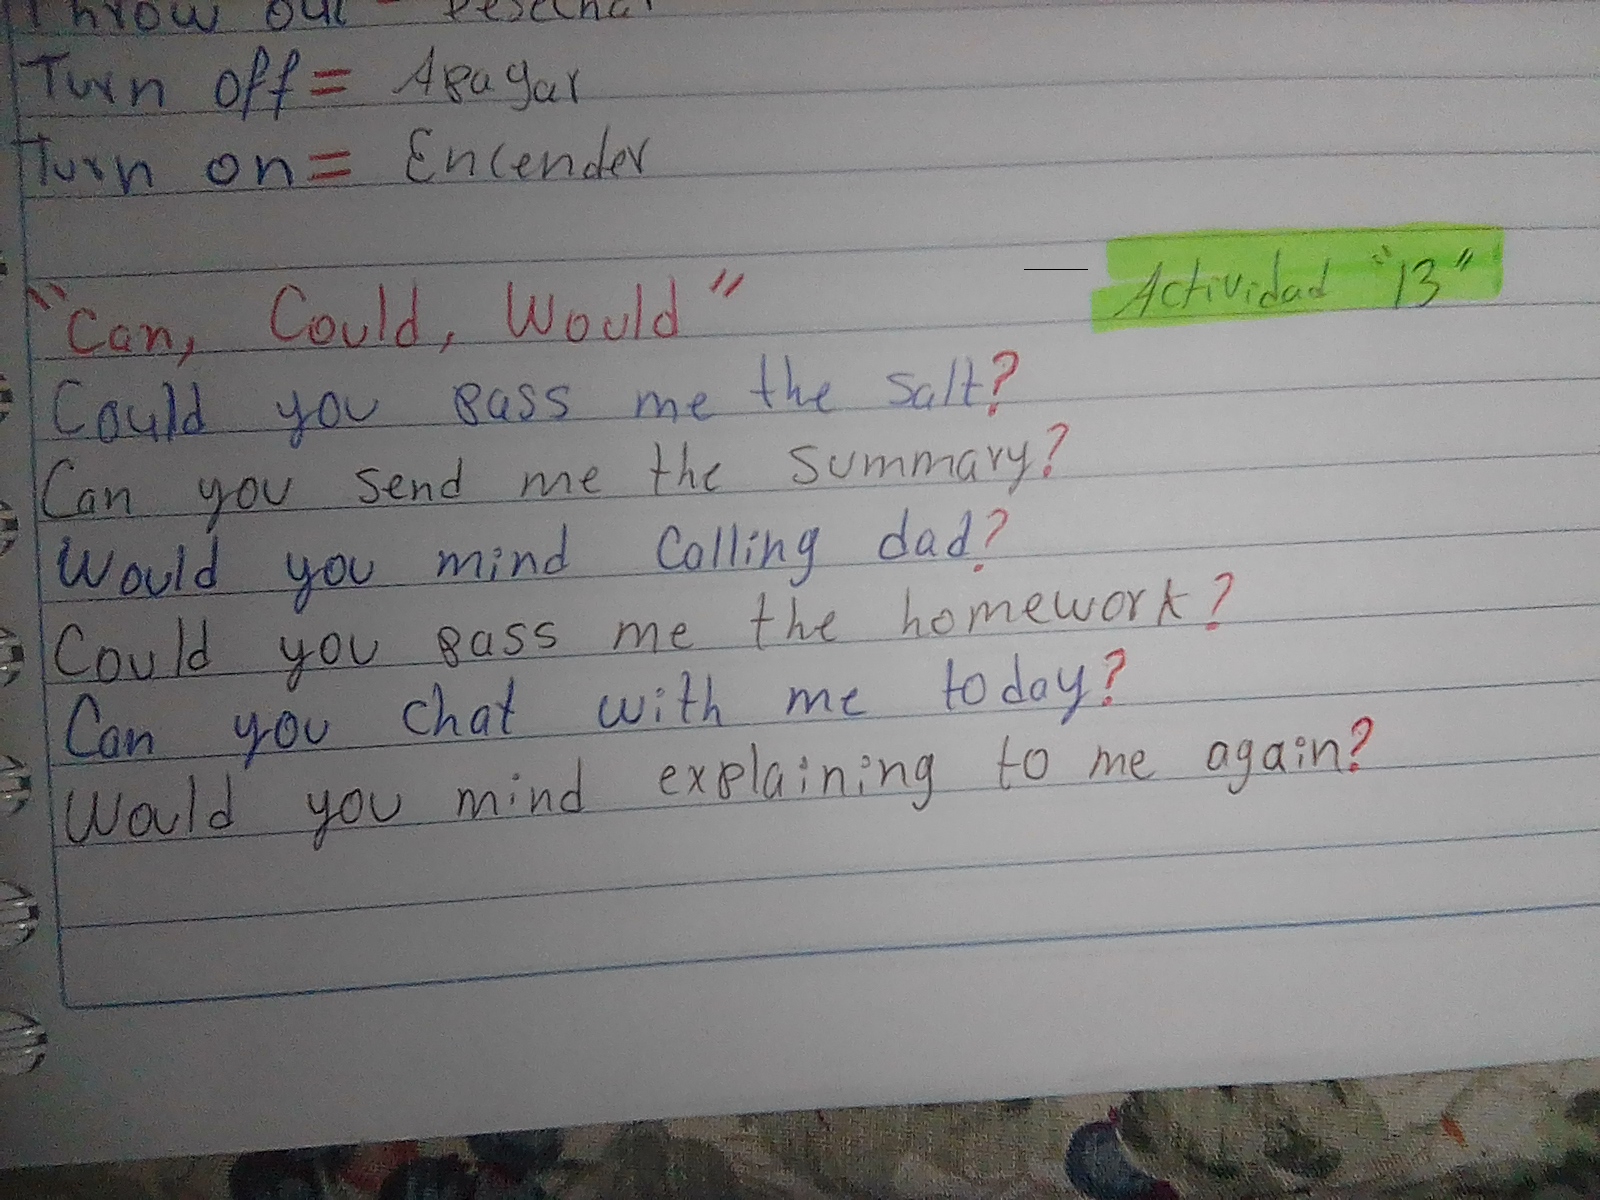 Throw out = Desechar
Turn off = Apagar
Turn on = Encender
Actividad "13"
"Can, Could, Would"
Could you pass me the salt?
Can you send me the summary?
Would you mind calling dad?
Could you pass me the homework?
Can you chat with me today?
Would you mind explaining to me again?